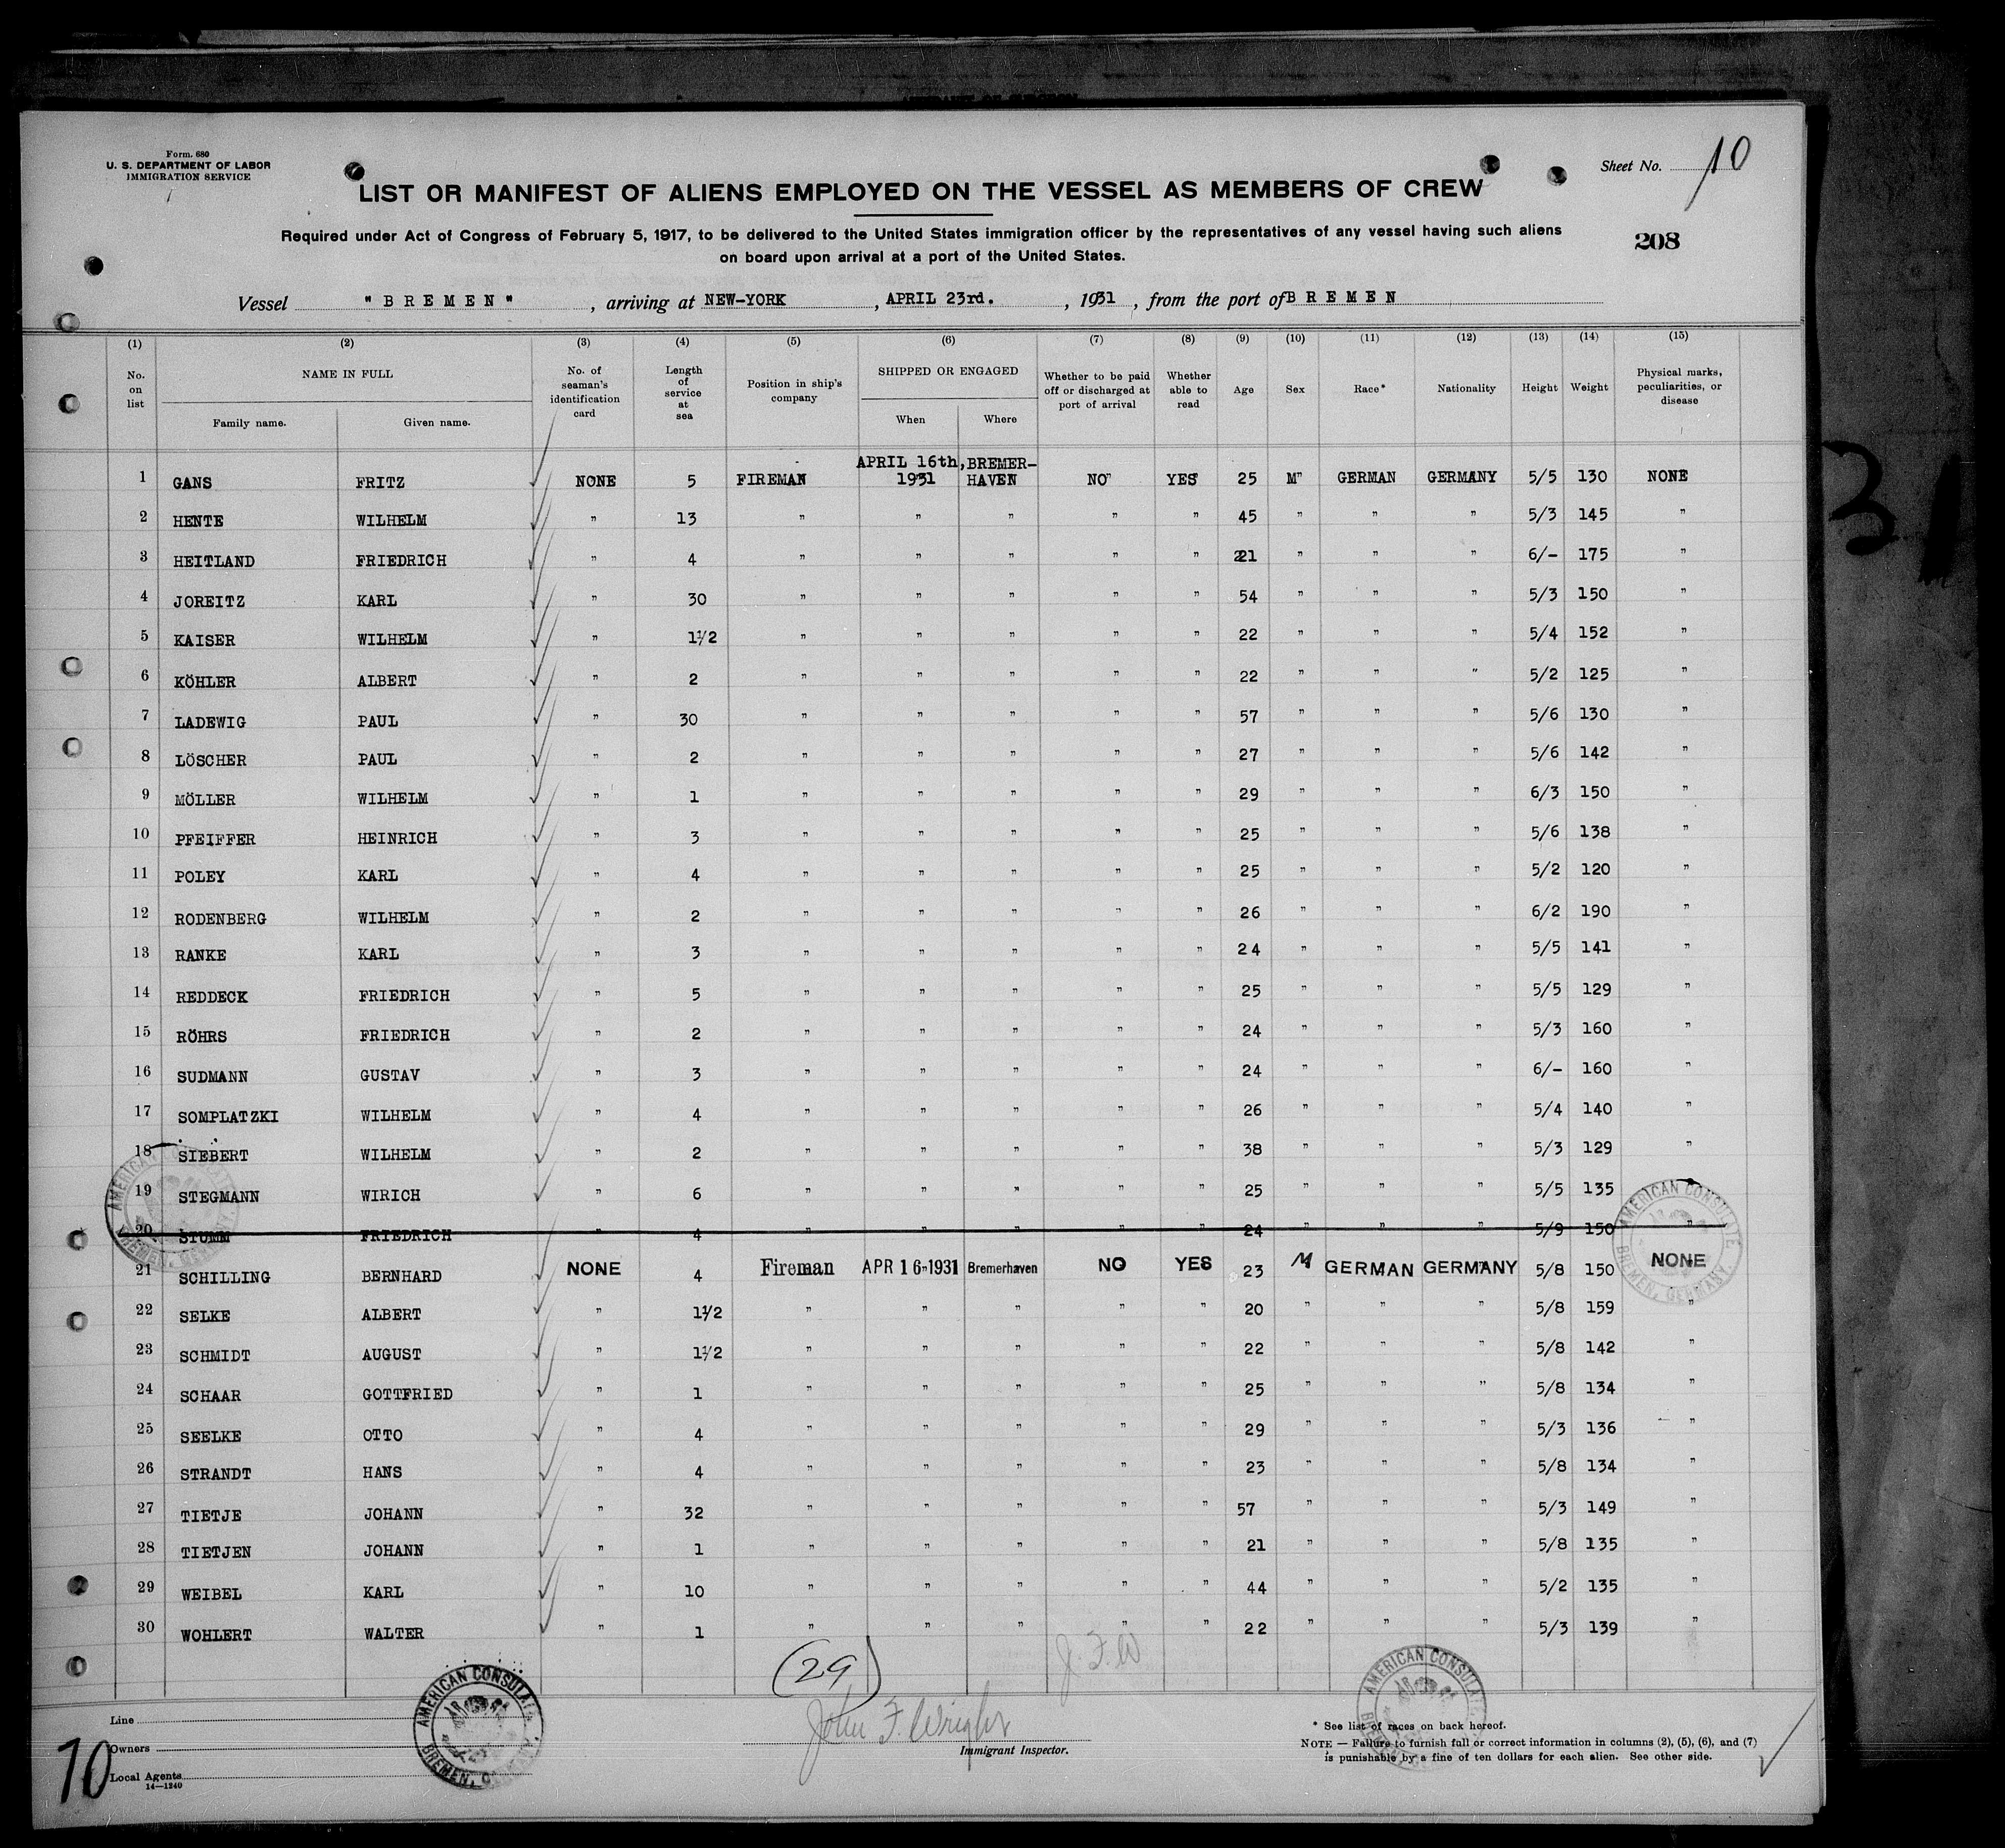 Form. 680
U. S. DEPARTMENT OF LABOR
IMMIGRATION SERVICE
Sheet No. 10
LIST OR MANIFEST OF ALIENS EMPLOYED ON THE VESSEL AS MEMBERS OF CREW
Required under Act of Congress of February 5, 1917, to be delivered to the United States immigration officer by the representatives of any vessel having such aliens
on board upon arrival at a port of the United States.
208
Vessel "BREMEN", arriving at NEW-YORK, APRIL 23rd., 1931, from the port of BREMEN
(1) (2) (3) (4) (5) (6) (7) (8) (9) (10) (11) (12) (13) (14) (15)
No. on list
NAME IN FULL
Family name. Given name.
No. of seaman's identification card
Length of service at sea
Position in ship's company
SHIPPED OR ENGAGED
When Where
Whether to be paid off or discharged at port of arrival
Whether able to read
Age
Sex
Race*
Nationality
Height
Weight
Physical marks, peculiarities, or disease
1 GANS FRITZ NONE 5 FIREMAN APRIL 16th, 1931 BREMER-HAVEN NO" YES" 25 M" GERMAN GERMANY 5/5 130 NONE
2 HENTE WILHELM " 13 " " " " " 45 " " " 5/3 145 "
3 HEITLAND FRIEDRICH " 4 " " " " " 21 " " " 6/- 175 "
4 JOREITZ KARL " 30 " " " " " 54 " " " 5/3 150 "
5 KAISER WILHELM " 1 1/2 " " " " " 22 " " " 5/4 152 "
6 KÖHLER ALBERT " 2 " " " " " 22 " " " 5/2 125 "
7 LADEWIG PAUL " 30 " " " " " 57 " " " 5/6 130 "
8 LÖSCHER PAUL " 2 " " " " " 27 " " " 5/6 142 "
9 MÖLLER WILHELM " 1 " " " " " 29 " " " 6/3 150 "
10 PFEIFFER HEINRICH " 3 " " " " " 25 " " " 5/6 138 "
11 POLEY KARL " 4 " " " " " 25 " " " 5/2 120 "
12 RODENBERG WILHELM " 2 " " " " " 26 " " " 6/2 190 "
13 RANKE KARL " 3 " " " " " 24 " " " 5/5 141 "
14 REDDECK FRIEDRICH " 5 " " " " " 25 " " " 5/5 129 "
15 RÖHRS FRIEDRICH " 2 " " " " " 24 " " " 5/3 160 "
16 SUDMANN GUSTAV " 3 " " " " " 24 " " " 6/- 160 "
17 SOMPLATZKI WILHELM " 4 " " " " " 26 " " " 5/4 140 "
18 SIEBERT WILHELM " 2 " " " " " 38 " " " 5/3 129 "
19 STEGMANN WIRICH " 6 " " " " " 25 " " " 5/5 135 "
20 STUMM FRIEDRICH " 4 " " " " " 24 " " " 5/9 150 "
21 SCHILLING BERNHARD NONE 4 Fireman APR 16 1931 Bremerhaven NO YES 23 M GERMAN GERMANY 5/8 150 NONE
22 SELKE ALBERT " 1 1/2 " " " " " 20 " " " 5/8 159 "
23 SCHMIDT AUGUST " 1 1/2 " " " " " 22 " " " 5/8 142 "
24 SCHAAR GOTTFRIED " 1 " " " " " 25 " " " 5/8 134 "
25 SEELKE OTTO " 4 " " " " " 29 " " " 5/3 136 "
26 STRANDT HANS " 4 " " " " " 23 " " " 5/8 134 "
27 TIETJE JOHANN " 32 " " " " " 57 " " " 5/3 149 "
28 TIETJEN JOHANN " 1 " " " " " 21 " " " 5/8 135 "
29 WEIBEL KARL " 10 " " " " " 44 " " " 5/2 135 "
30 WOHLERT WALTER " 1 " " " " " 22 " " " 5/3 139 "
(29)
J. F. W
AMERICAN CONSULATE BREMEN, GERMANY.
AMERICAN CONSULATE BREMEN, GERMANY.
AMERICAN CONSULATE
AMERICAN CONSULATE
Line
Owners
Local Agents
14—1240
10
John F. Wright
Immigrant Inspector.
* See list of races on back hereof.
NOTE — Failure to furnish full or correct information in columns (2), (5), (6), and (7)
is punishable by a fine of ten dollars for each alien. See other side.
31